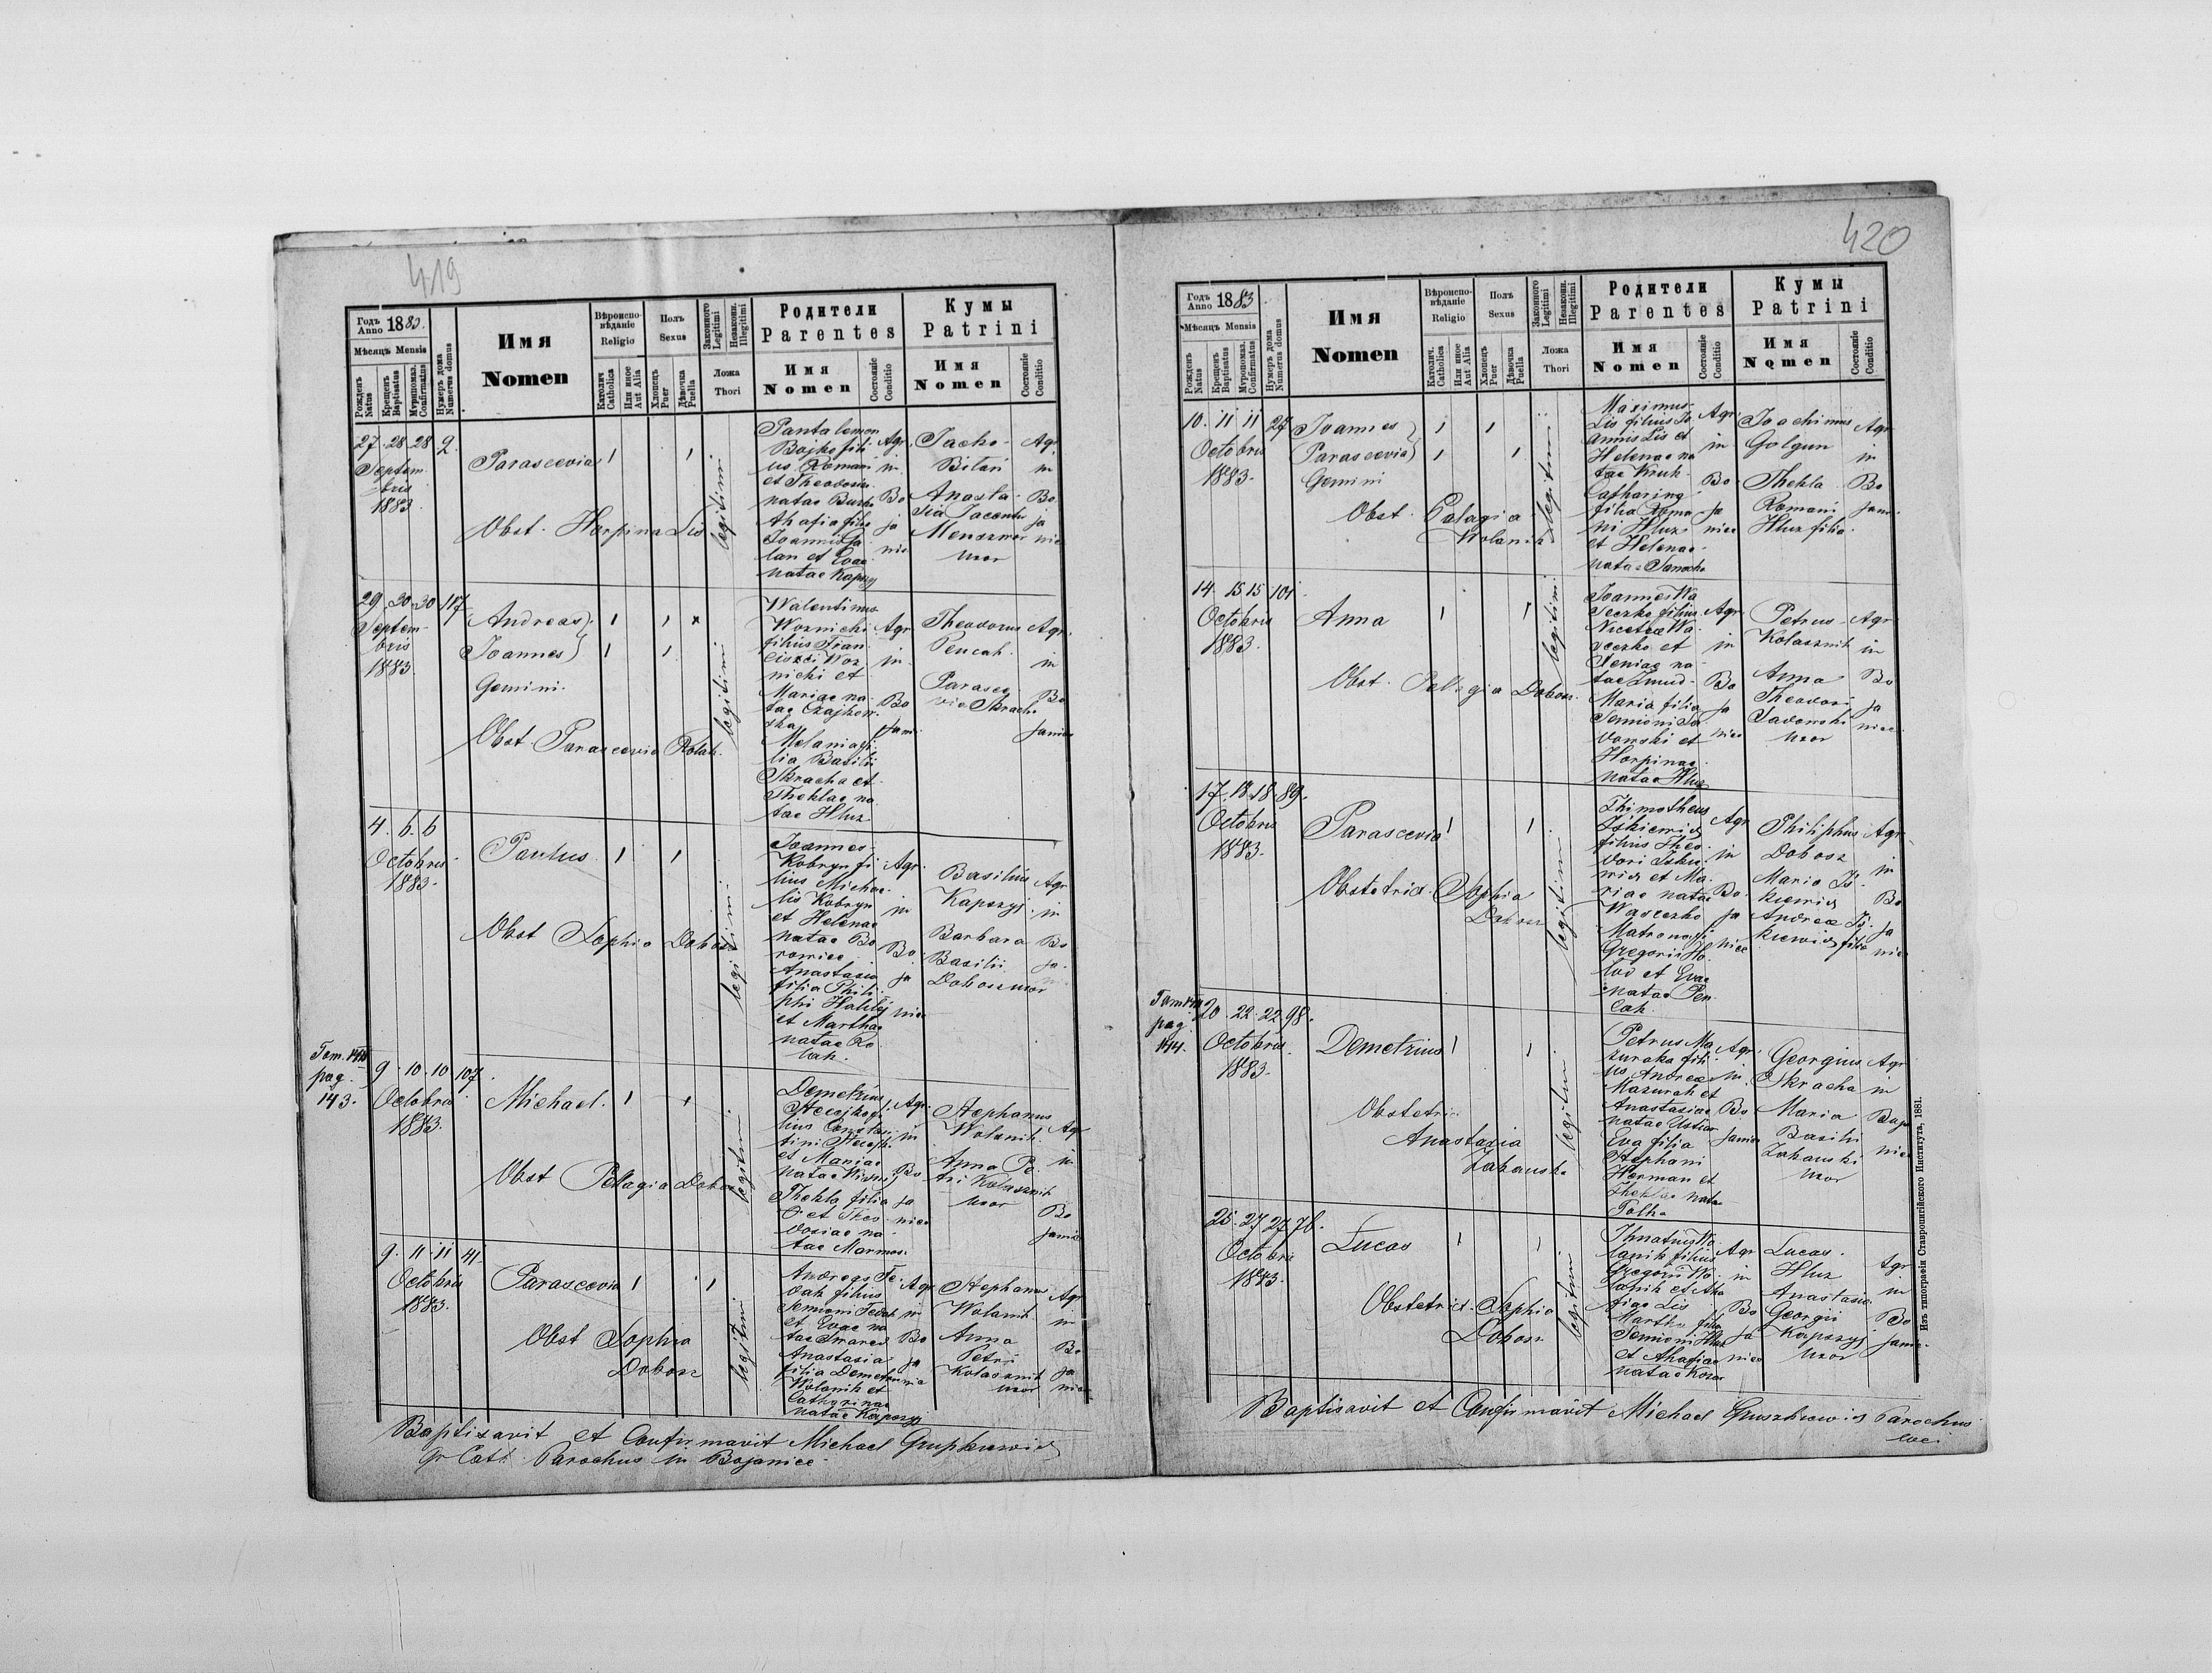 419
Годъ Anno 1883.
Мѣсяцъ Mensis
Рожденъ Natus
Крещенъ Baptisatus
Мѵропомаз. Confirmatus
Нумеръ дома Numerus domus
Имя
Nomen
Вѣроиспо-
вѣданіе
Religio
Католич. Catholica
Или иное Aut Alia
Полъ
Sexus
Хлопецъ Puer
Дѣвочка Puella
Законного Legitimi
Незаконн. Illegitimi
Ложа
Thori
Родители
Parentes
Имя
Nomen
Состояніе Conditio
Кумы
Patrini
Имя
Nomen
Состояніе Conditio
27 28 28 2
Septem
bris
1883
Parascevia
Obst. Horpina Lis
legitimi
Pantalemon
Bojko fili
us Romani
et Theodosiae
natae Burko
Ahafia filia
Joannis
et Evae
natae Kapszyj
Agr.
in
Bo
ja
nice
Jacho
Bilan
Anasta
sia Jacenti
uxor
Agr.
in
Bo
ja
nice
29 30 30 117
Septem
bris
1883
Andreas
Joannes
Gemini.
Obst Parascevia Rolak.
legitimi
Walentinus
Woznicki
filius Fran
ciszci Woz
nicki et
Mariae na
tae Czajkow
ska
Melania fi
lia Basilii
Skracha et
Theklae na
tae Hluz
Agr
in
Bo
janice
Theodorus
Pencak.
Parasce
via Skracha
Agr.
in
Bo
janice
4. 6. 6
Octobris
1883.
Paulus
Obst Sophia Dobosz
legitimi
Joannes
Kobryn fi
lius Micha
lis Kobryn
et Helenae
natae Bo
rowiec
Anastasia
filia Phili
phi Halilej
et Marthae
natae Ro
lak.
Agr.
in
Bo
ja
nice
Basilius
Kapszyj
Barbara
Basilii
Dobosz uxor
Agr
in
Bo
ja
Tom. VIII
pag.
143.
9 10 10 107.
Octobris
1883.
Michael.
Obst Pellagia Dobosz
legitimi
Demetrius
Steciyk fi
lius Constan
tini Steciyk
et Mariae
natae
Thekla filia
O et Theo
dosiae na
tae Marmos.
Agr.
in
Bo
ja
nice
Stephanus
Wolanik.
Anna Pe
tri Kolasznik
uxor
Agr
in
Bo
janice
9. 11. 11 41.
Octobris
1883.
Parascevia
Obst Sophia
Dobosz
legitimi
Andreas Fe
dak filius
Semioni Fedak
et Evae na
tae
Anastasia
filia Demetrii
Wolanik et
Catharinae
natae Kapszyj
Agr
in
Bo
ja
nice
Stephanus
Wolanik
Anna
Petri
Kolasznik
uxor
Agr
in
Bo
ja
nice
Baptisavit et Confirmavit Michael Gruszkiewicz
Gr Cath Parochus in Bojanice
420
Годъ Anno 1883
Мѣсяцъ Mensis
Рожденъ Natus
Крещенъ Baptisatus
Мѵропомаз. Confirmatus
Нумеръ дома Numerus domus
Имя
Nomen
Вѣроиспо-
вѣданіе
Religio
Католич. Catholica
Или иное Aut Alia
Полъ
Sexus
Хлопецъ Puer
Дѣвочка Puella
Законного Legitimi
Незаконн. Illegitimi
Ложа
Thori
Родители
Parentes
Имя
Nomen
Состояніе Conditio
Кумы
Patrini
Имя
Nomen
Состояніе Conditio
10. 11 11 27
Octobris
1883.
Joannes
Parascevia
Gemini
Obst. Palagia
Wolanik
legitimi
Maximus
Lis filius Jo
annis Lis et
Helenae na
tae Kruk
Catharina
filia Roma
ni Hluz
et Helenae
natae Samocha
Agr.
in
Bo
ja
nice
Joachimus
Golgun
Thekla
Romani
Hluz filia.
Agr
in
Bo
jani
14. 15 15 101
Octobris
1883.
Anna
Obst. Pelagia Dobosz.
legitimi
Joannes Wa
seczko filius
Nicetae Wa
seczko et
Xeniae na
tae Zmud
Maria filia
Semioni Sa
dowski et
Horpinae
natae Hluz
Agr
in
Bo
ja
nice
Petrus
Kolasznik
Anna
Theodori
Sadowski
uxor
Agr
in
Bo
ja
nice
17. 18. 18. 89.
Octobris
1883.
Parascevia
Obstetrix Sophia
Dobosz
legitimi
Thimotheus
Iskiewicz
filius Theo
dori Iskie
wicz et Ma
riae natae
Waseczko
Matrona fi
Gregorii Ho
lod et Evae
natae Pen
cak.
Agr
in
Bo
ja
nice
Philiphus
Dobosz
Maria Is
kiewicz
Andreae Is
kiewicz filia
Agr
in
Bo
ja
nice
Tom VIII
pag.
144.
20. 22. 22 98.
Octobris.
1883.
Demetrius
Obstetrix
Anastasia
Zakauska
legitimi
Petrus Ma
zurak fili
us Andreae
Mazurak et
Anastasiae
natae
Eva filia
Stephani
Herman et
Theklae natae
Polha
Agr.
in
Bo
janice
Georgius
Skracha
Maria
Basilii
Zakauski
uxor
Agr
in
Boja
nice
25. 27 27 76.
Octobris
1883.
Lucas
Obstetrix Sophia
Dobosz
legitimi
Ihnatius Wo
lanik filius
Gregorii Wo
lanik et Aha
fiae Lis
Martha filia
Semioni Hluz
et Ahafiae
natae Kozar
Agr
in
Bo
ja
nice
Lucas
Hluz
Anastasia
Georgii
Kapszyj
uxor
Agr
in
Bo
janic
Baptisavit et Confirmavit Michael Gruszkiewicz Parochus
loci
Изъ типографіи Ставропигійского Института, 1881.